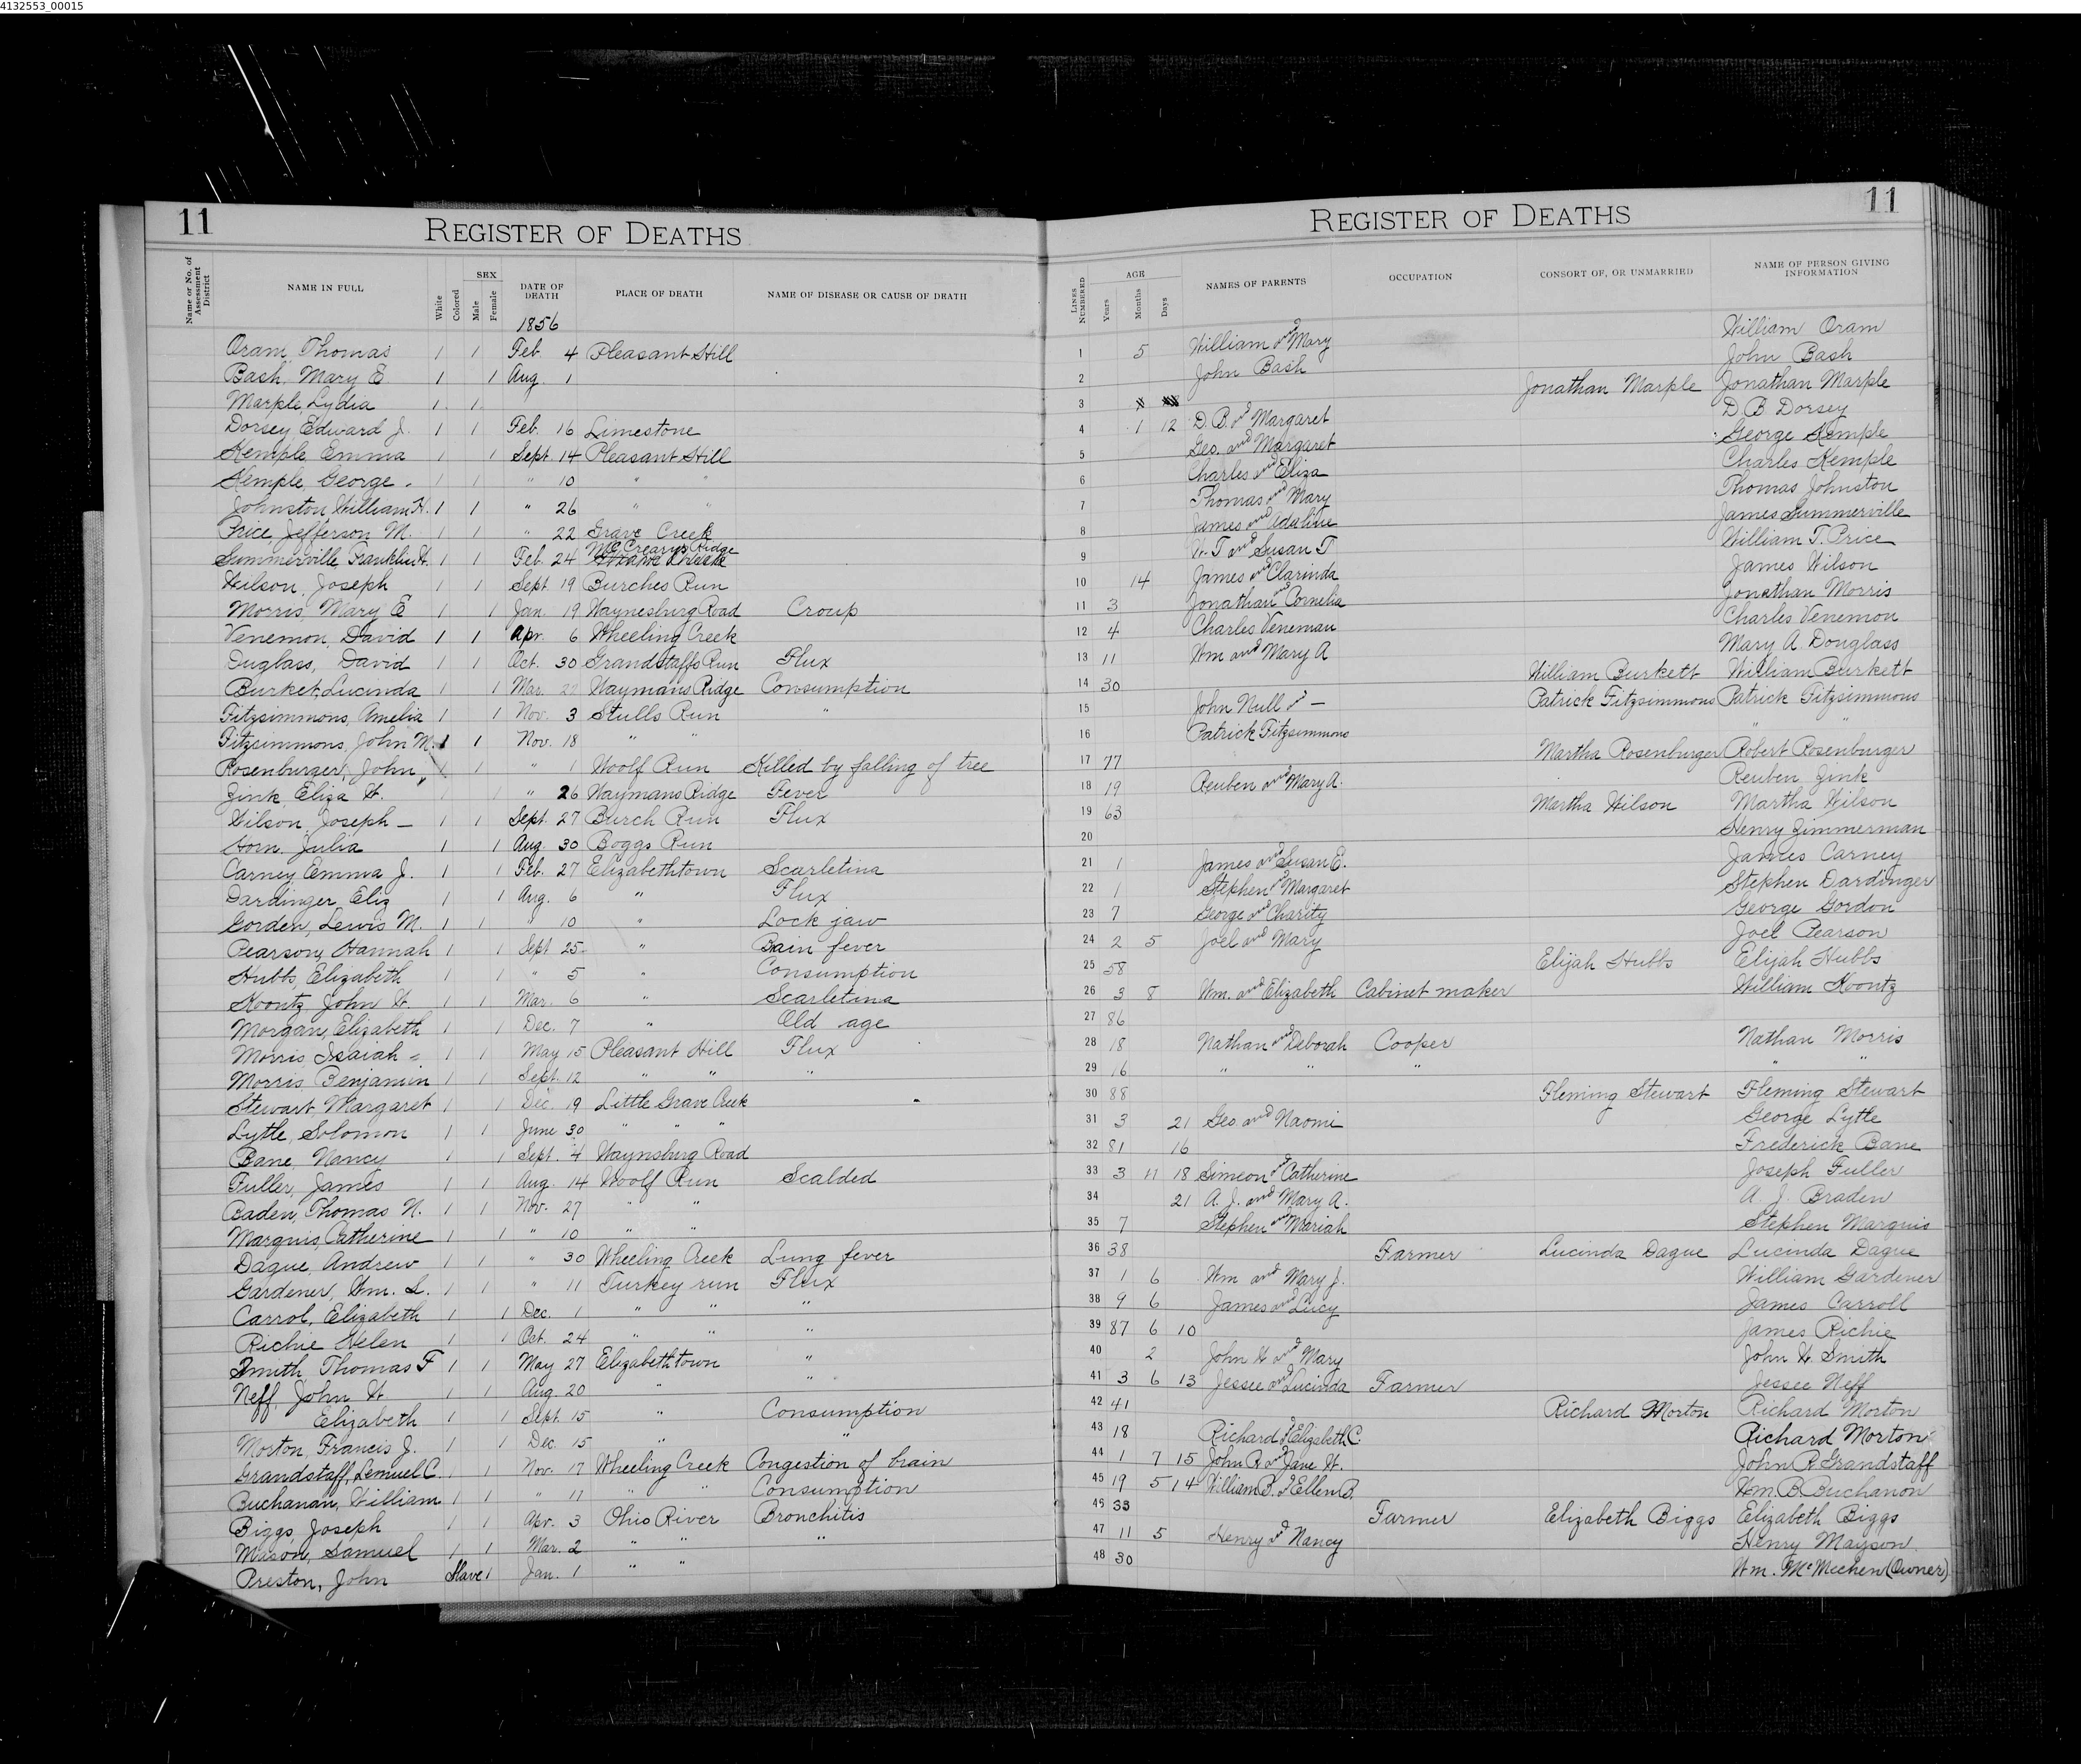 4132553_00015
11 REGISTER OF DEATHS
Name or No. of Assessment District | NAME IN FULL | White | Colored | SEX Male | Female | DATE OF DEATH | PLACE OF DEATH | NAME OF DISEASE OR CAUSE OF DEATH
1856
Oram, Thomas 1 1 Feb. 4 Pleasant Hill
Bash, Mary E 1 1 Aug. 1
Marple, Lydia 1 1
Dorsey Edward J. 1 1 Feb. 16 Limestone
Kemple Emma 1 1 Sept. 14 Pleasant Hill
Kemple, George 1 1 " 10 " "
Johnston William H. 1 1 " 26 " "
Price, Jefferson M. 1 1 " 22 Grave Creek
Summerville Franklin H. 1 1 Feb. 24 McCrearys Ridge
Wilson, Joseph 1 1 Sept. 19 Burches Run
Morris, Mary E 1 1 Jan. 19 Waynesburg Road Croup
Venemon, David 1 1 Apr. 6 Wheeling Creek
Duglass, David 1 1 Oct. 30 Grandstaffs Run Flux
Burket, Lucinda 1 1 Mar. Waymans Ridge Consumption
Fitzsimmons, Amelia 1 1 Nov. 3 Stulls Run "
Fitzsimmons, John M. 1 1 Nov. 18 " "
Rosenburger, John 1 1 " 1 Woolf Run Killed by falling of tree
Zink, Eliza W. 1 1 " 26 Waymans Ridge Fever
Wilson, Joseph — 1 1 Sept. 27 Burch Run Flux
Horn, Julia 1 1 Aug. 30 Boggs Run
Carney, Emma J. 1 1 Feb. 27 Elizabethtown Scarletina
Dardinger, Eliz 1 1 Aug. 6 " Flux
Gorden, Lewis M. 1 1 " 10 " Lock jaw
Pearson, Hannah 1 1 Sept 25 " Bain fever
Hubbs, Elizabeth 1 1 " 5 " Consumption
Koontz John W. 1 1 Mar. 6 " Scarletina
Morgan, Elizabeth 1 1 Dec. 7 " Old age
Morris Isaiah 1 1 May 15 Pleasant Hill Flux
Morris Benjamin 1 1 Sept. 12 " " "
Stewart, Margaret 1 1 Dec. 19 Little Grave Creek
Lytle, Solomon 1 1 June 30 " " "
Bane, Nancy 1 1 Sept. 4 Waynsburg Road
Fuller, James 1 1 Aug. 14 Woolf Run Scalded
Baden, Thomas N. 1 1 Nov. 27 " "
Marquis, Catherine 1 1 " 10 " "
Dague, Andrew 1 1 " 30 Wheeling Creek Lung fever
Gardener, Wm. L. 1 1 " 11 Turkey run Flux
Carrol, Elizabeth 1 1 Dec. 1 " " "
Richie Helen 1 1 Oct. 24 " " "
Smith, Thomas F 1 1 May 27 Elizabethtown "
Neff, John W 1 1 Aug. 20 " "
Elizabeth 1 1 Sept. 15 " Consumption
Morton, Francis J. 1 1 Dec. 15 " "
Grandstaff, Lemuel C. 1 1 Nov. 17 Wheeling Creek Congestion of brain
Buchanan, William 1 1 " 11 " " Consumption
Biggs, Joseph 1 1 Apr. 3 Ohio River Bronchitis
Mason, Samuel 1 1 Mar. 2 " " "
Preston, John Slave 1 Jan. 1 " "
REGISTER OF DEATHS 11
LINES NUMBERED | AGE Years | Months | Days | NAMES OF PARENTS | OCCUPATION | CONSORT OF, OR UNMARRIED | NAME OF PERSON GIVING INFORMATION
1 5 William and Mary William Oram
2 John Bash John Bash
3 Jonathan Marple Jonathan Marple
4 1 12 D. B. & Margaret D. B. Dorsey
5 Geo. and Margaret George Kemple
6 Charles and Eliza Charles Kemple
7 Thomas and Mary Thomas Johnston
8 James and Adaline James Summerville
9 W. T and Susan T William T. Price
10 14 James and Clarinda James Wilson
11 3 Jonathan and Cornelia Jonathan Morris
12 4 Charles Veneman Charles Venemon
13 11 Wm and Mary A Mary A. Douglass
14 30 William Burkett William Burkett
15 John Null & — Patrick Fitzsimmons Patrick Fitzsimmons
16 Patrick Fitzsimmons " "
17 77 Martha Rosenburger Robert Rosenburger
18 19 Reuben and Mary A. Reuben Zink
19 63 Martha Wilson Martha Wilson
20 Henry Zimmerman
21 1 James and Susan E. James Carney
22 1 Stephen and Margaret Stephen Dardinger
23 7 George and Charity George Gordon
24 2 5 Joel and Mary Joel Pearson
25 58 Elijah Hubbs Elijah Hubbs
26 3 8 Wm. and Elizabeth Cabinet maker William Koontz
27 86
28 18 Nathan and Deborah Cooper Nathan Morris
29 16 " " " " "
30 88 Fleming Stewart Fleming Stewart
31 3 21 Geo. and Naomi George Lytle
32 81 16 Frederick Bane
33 3 11 18 Simeon & Catherine Joseph Fuller
34 21 A. J. and Mary A. A. J. Braden
35 7 Stephen and Mariah Stephen Marquis
36 38 Farmer Lucinda Dague Lucinda Dague
37 1 6 Wm and Mary J. William Gardener
38 9 6 James and Lucy James Carroll
39 87 6 10 James Richie
40 2 John W and Mary John W Smith
41 3 6 13 Jessee and Lucinda Farmer Jessee Neff
42 41 Richard Morton Richard Morton
43 18 Richard & Elizabeth C. Richard Morton
44 1 7 15 John R. and Jane W. John R Grandstaff
45 19 5 14 William B. & Ellen B. Wm. B. Buchanon
45 33 Farmer Elizabeth Biggs Elizabeth Biggs
47 11 5 Henry and Nancy Henry Mayson
48 30 Wm. McMechen (Owner)